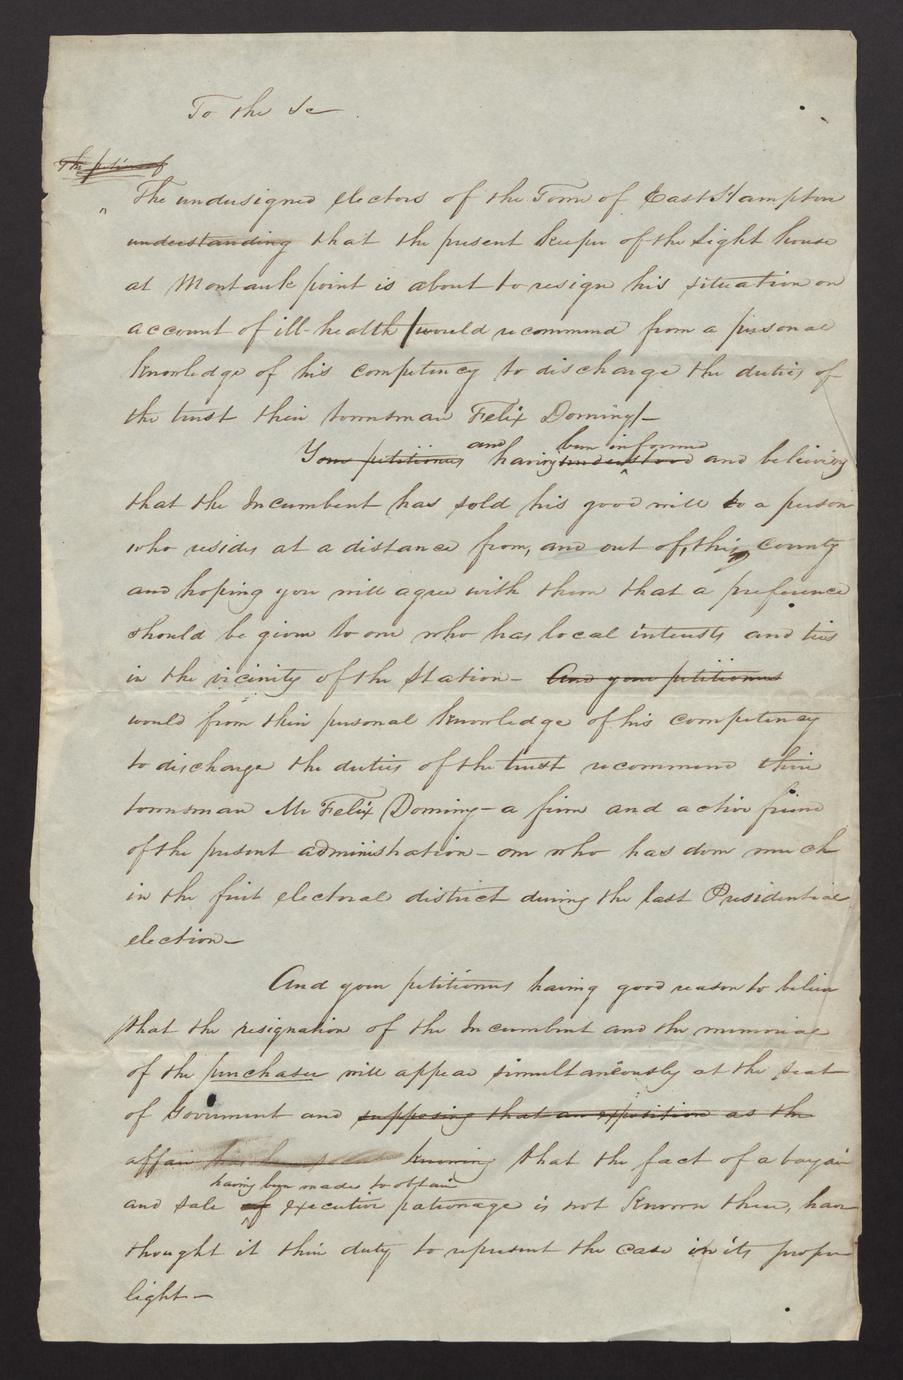 To the Se
The petition of
The undersigned electors of the Town of East Hampton
understanding that the present keeper of the Light house
at Montauk point is about to resign his situation on
account of ill-health would recommend from a personal
knowledge of his competency to discharge the duties of
the trust their townsman Felix Dominy -
and been informed
Your petitioners having understood and believing
that the Incumbent has sold his good will to a person
who resides at a distance from, and out of, this county
and hoping you will agree with them that a preference
should be given to one who has local interests and ties
in the vicinity of the Station - And your petitioners
would from their personal knowledge of his competency
to discharge the duties of the trust recommend their
townsman Mr Felix Dominy - a firm and active friend
of the present administration - one who has done much
in the first electoral district during the last Presidential
election -
And your petitioners having good reason to believe
that the resignation of the Incumbent and the memorial
of the purchaser will appear simultaneously at the seat
of Government and supposing that an exposition as the
affair has been knowing that the fact of a bargain
having been made to obtain
and sale of executive patronage is not known there, have
thought it their duty to represent the case in its proper
light -